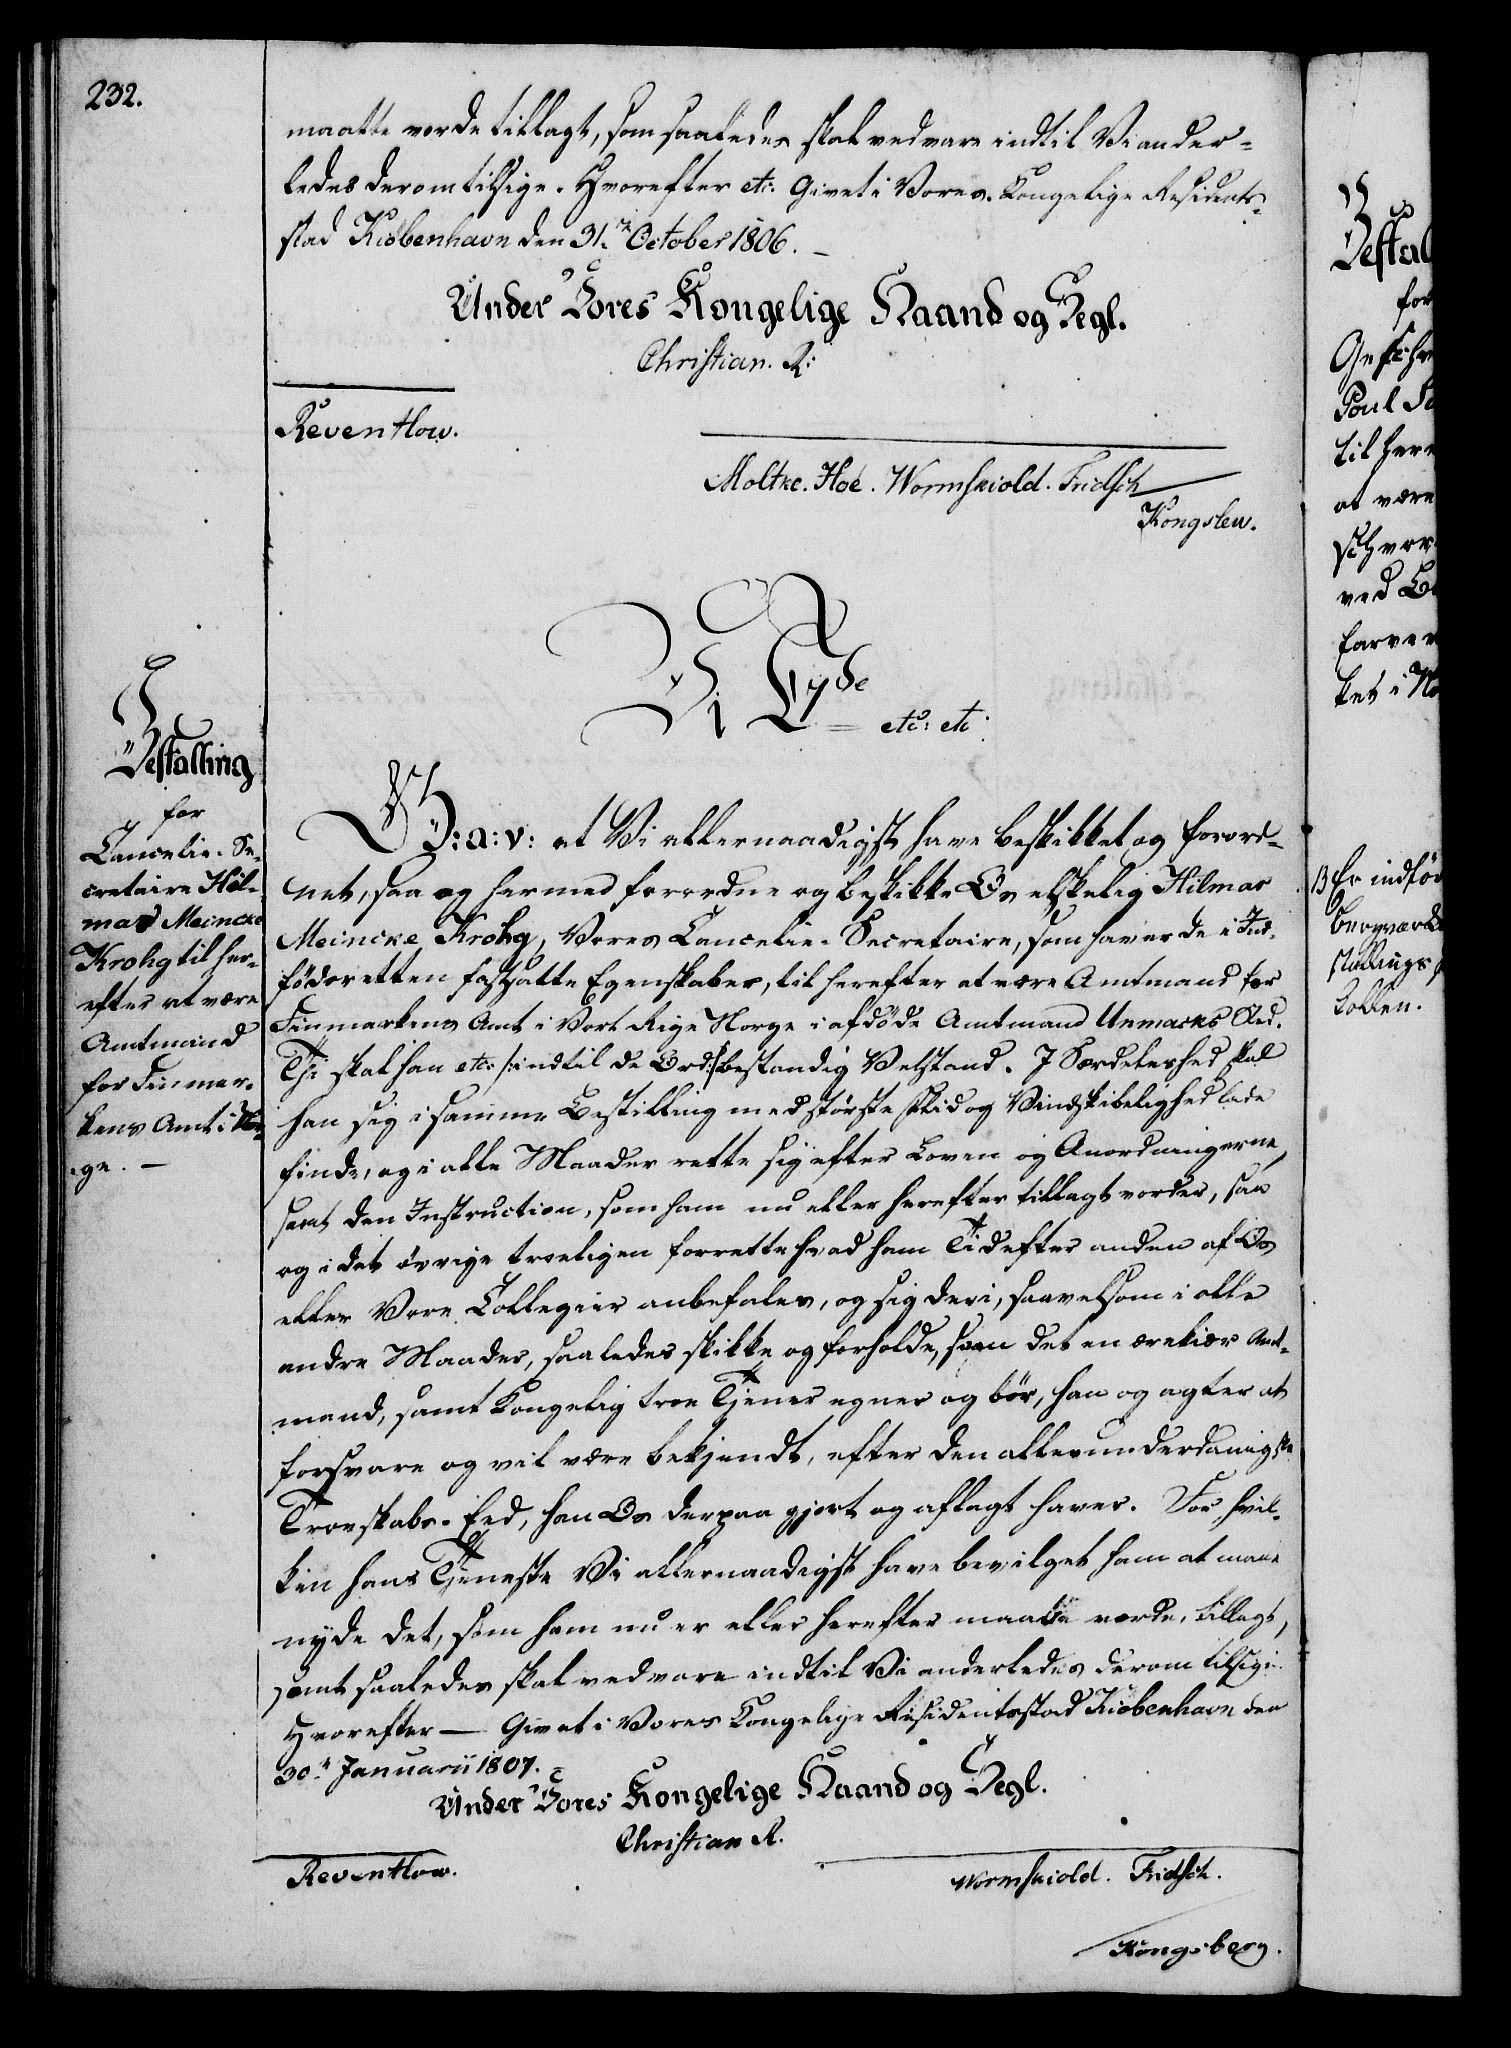 232.
maatte vorde tillagt, som saaledes skal vedvare indtil Vi ander-
ledes derom tilsige. Hvorefter etc: Givet i Vores Kongelige Residents-
stad Kiöbenhavn den 31.te October 1806.
Under Vores Kongelige Haand og Segl.
Christian. R:
Reventlow.
Moltke. Hoe. Wormskiold. Fridsch
Kongslew.
Vi C 7de etc: etc:
Bestalling
for
Cancelie-Se-
cretaire Hil-
mar Meincke
Krohg til her-
efter at være
Amtmand
for Finmar-
kens Amt i Nor-
ge. —
G: a: v: at Vi allernaadigst have beskikket og forord-
net, saa og hermed forordne og beskikke Os elskelig Hilmar
Meincke Krohg, Vores Cancelie-Secretaire, som haver de i Ind-
födsretten fastsatte Egenskaber, til herefter at være Amtmand for
Finmarkens Amt i Vort Rige Norge i afdöde Amtmand Unmacks Sted.
Thi skal han etc: /: indtil de Ord:/ bestandig Velstand. I Særdeleshed skal
han sig i samme Bestilling med störste Flid og Vindskibelighed lade
finde, og i alle Maader rette sig efter Loven og Anordningerne,
samt den Instruction, som ham nu eller herefter tillagt vorder, saa
og i det övrige troeligen forrette hvad ham Tid efter anden af Os
eller Vore Collegier anbefales, og sig deri, saavelsom i alle
andre Maader, saaledes skikke og forholde, som det en ærekiær Amt-
mand, samt Kongelig troe Tjener egner og bör, han og agter at
forsvare og vil være bekjendt, efter den allerunderdanigste
Troeskabs-Eed, han Os derpaa gjort og aflagt haver. For hvil-
ken hans Tjeneste Vi allernaadigst have bevilget ham at maae
nyde det, som ham nu er eller herefter maatte vorde tillagt,
samt saaledes skal vedvare indtil Vi anderledes derom tilsige.
Hvorefter — Givet i Vores Kongelige Residentsstad Kiöbenhavn den
30.te Januarii 1807.
Under Vores Kongelige Haand og Segl.
Christian R.
Reventlow.
Wormskiold. Fridsch.
Kongsberg.
Bestal
for
Poul
til here
at være
ved
ket i No
Er indför
Bergværks
stillings